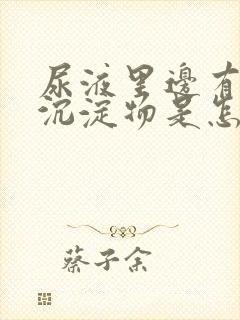 尿液里邊有
沉淀物是怎
蔡子余